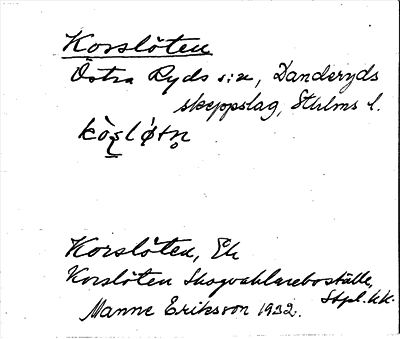 Korslöten
Östra Ryds s:n, Danderyds
skeppslag, Sthlms l.
Korslöten, Ek
Korslöten Skogvaktareboställe,
Stpl. kk.
Manne Eriksson 1932.